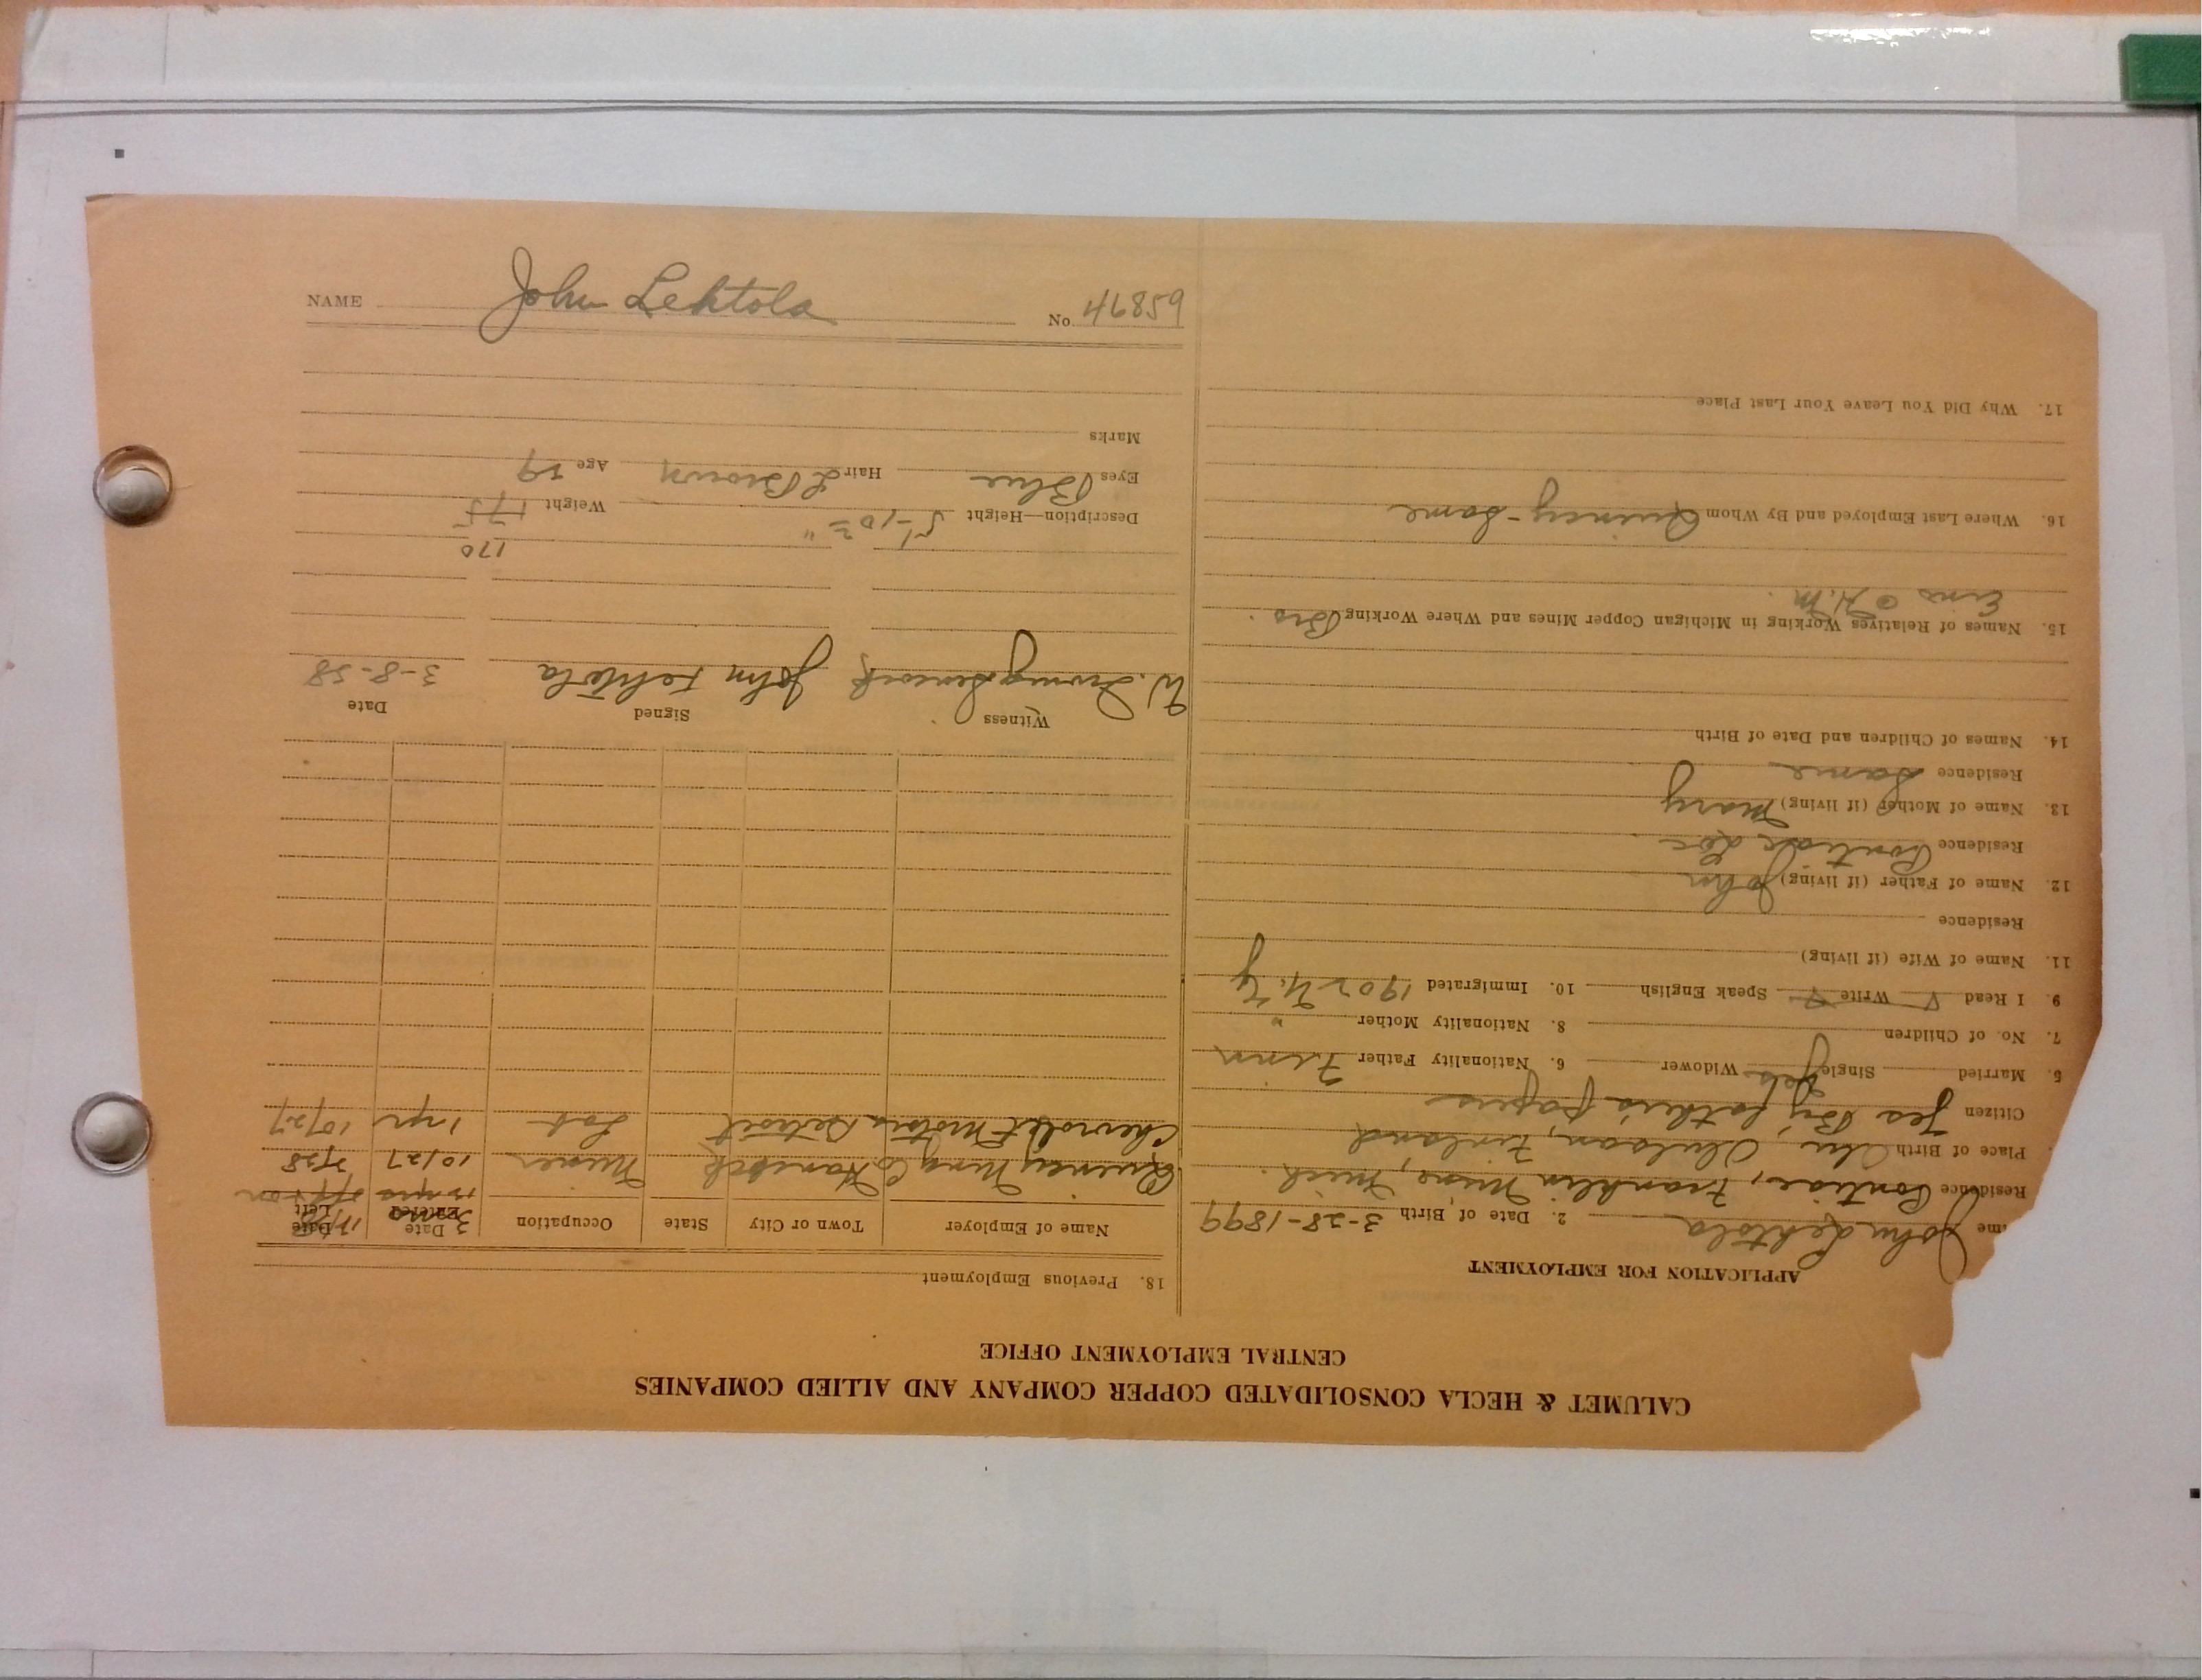 NAME John Lehtola No. 46859
CALUMET & HECLA CONSOLIDATED COPPER COMPANY AND ALLIED COMPANIES
CENTRAL EMPLOYMENT OFFICE
APPLICATION FOR EMPLOYMENT
me John Lehtola 2. Date of Birth 3-28-1899
Residence Pontiac, Franklin Mine, Mich.
Place of Birth Finland
Citizen Yes By father's papers
5. Married Single Yes Widower 6. Nationality Father Finn
7. No. of Children 8. Nationality Mother "
9. I Read √ Write √ Speak English 10. Immigrated 1902 N.Y.
11. Name of Wife (if living)
Residence
12. Name of Father (if living) John
Residence Pontiac Loc
13. Name of Mother (if living) Mary
Residence Same
14. Names of Children and Date of Birth
15. Names of Relatives Working in Michigan Copper Mines and Where Working Bro
Eino C H.M.
16. Where Last Employed and By Whom Quincy - Same
17. Why Did You Leave Your Last Place
18. Previous Employment
Name of Employer Town or City State Occupation Date Entered Date Left
3 mo
Quincy Mng Co Hancock Miner 10/27 2/38
Chevrolet Motors Detroit Lab 1 yr 10/27
Witness Signed Date
W. John Lehtola 3-8-38
170
Description—Height 5'-10½" Weight 175
Eyes Blue Hair L Brown Age 39
Marks